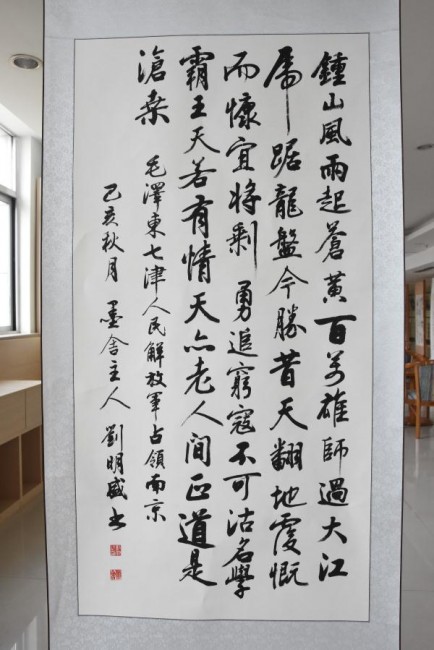 鍾山風雨起蒼黄百万雄師過大江
虎踞龍盤今勝昔天翻地覆慨
而慷宜将剩勇追窮寇不可沽名學
霸王天若有情天亦老人間正道是
滄桑 毛澤東七律人民解放軍占領南京
己亥秋月 墨舍主人 劉明威书